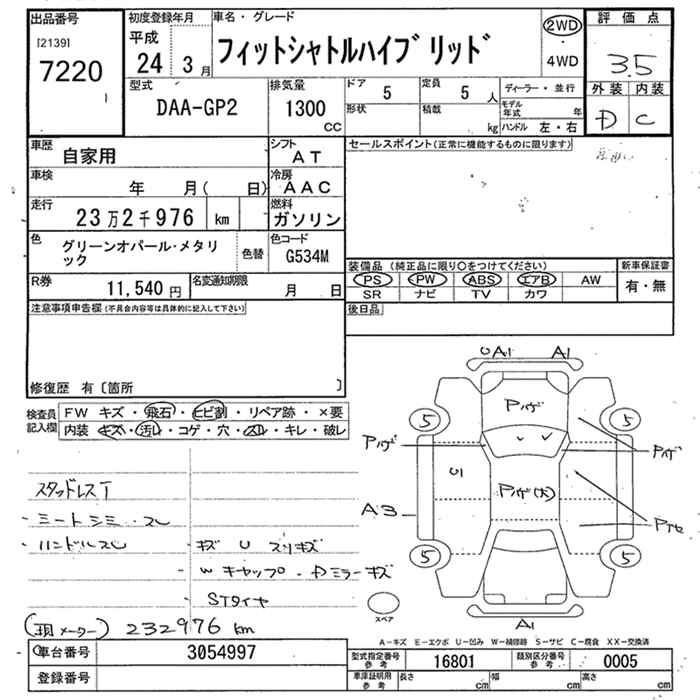 出品番号
[2139]
7220
初度登録年月
平成
24 3月
車名・グレード
フィットシャトルハイブリッド
2WD
・
4WD
評価点
3.5
外装 内装
D C
型式
DAA-GP2
排気量
1300
CC
ドア
5
定員
5 人
形状
積載
kg
ディーラー・並行
モデル年式 年
ハンドル 左・右
車歴
自家用
シフト
AT
車検
年 月( 日)
冷房
AAC
走行
23万2千976 km
燃料
ガソリン
色
グリーンオパール・メタリック
色替
色コード
G534M
R券
11,540円
名変通知期限
月 日
セールスポイント(正常に機能するものに限ります)
装備品(純正品に限り○をつけてください)
PS PW ABS エアB AW
SR ナビ TV カワ
新車保証書
有・無
後日品
注意事項申告欄(不具合内容等は具体的に記入して下さい)
修復歴 有〔箇所 〕
検査員記入欄
FW キズ・飛石・ヒビ割・リペア跡・×要
内装 キズ・汚れ・コゲ・穴・スレ・キレ・破レ
スタッドレスT
・シミ・スレ
ハンドルスレ
キズ U スリキズ
W キャップ・Dミラーキズ
STタイヤ
(現メーター) 232976 km
U A1 A1
Pハゲ
5 5
Pハゲ Pハゲ
U1
Pハゲ(大)
A3
5 5
A1
スペア
A-キズ E-エクボ U-凹み W-補修跡 S-サビ C-腐食 XX-交換済
車台番号
3054997
登録番号
型式指定番号
参考
16801
類別区分番号
参考
0005
車庫証明用
参考
長さ cm 幅 cm 高さ cm